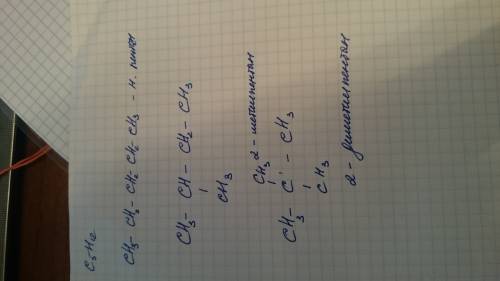 C₅H₁₂
CH₃- CH₂- CH₂ CH₂ CH₃ - н. пентан
CH₃- CH - CH₂- CH₃
CH₃
2-метилпентан
CH₃
CH₃- C - CH₃
CH₃
2-диметилпентан